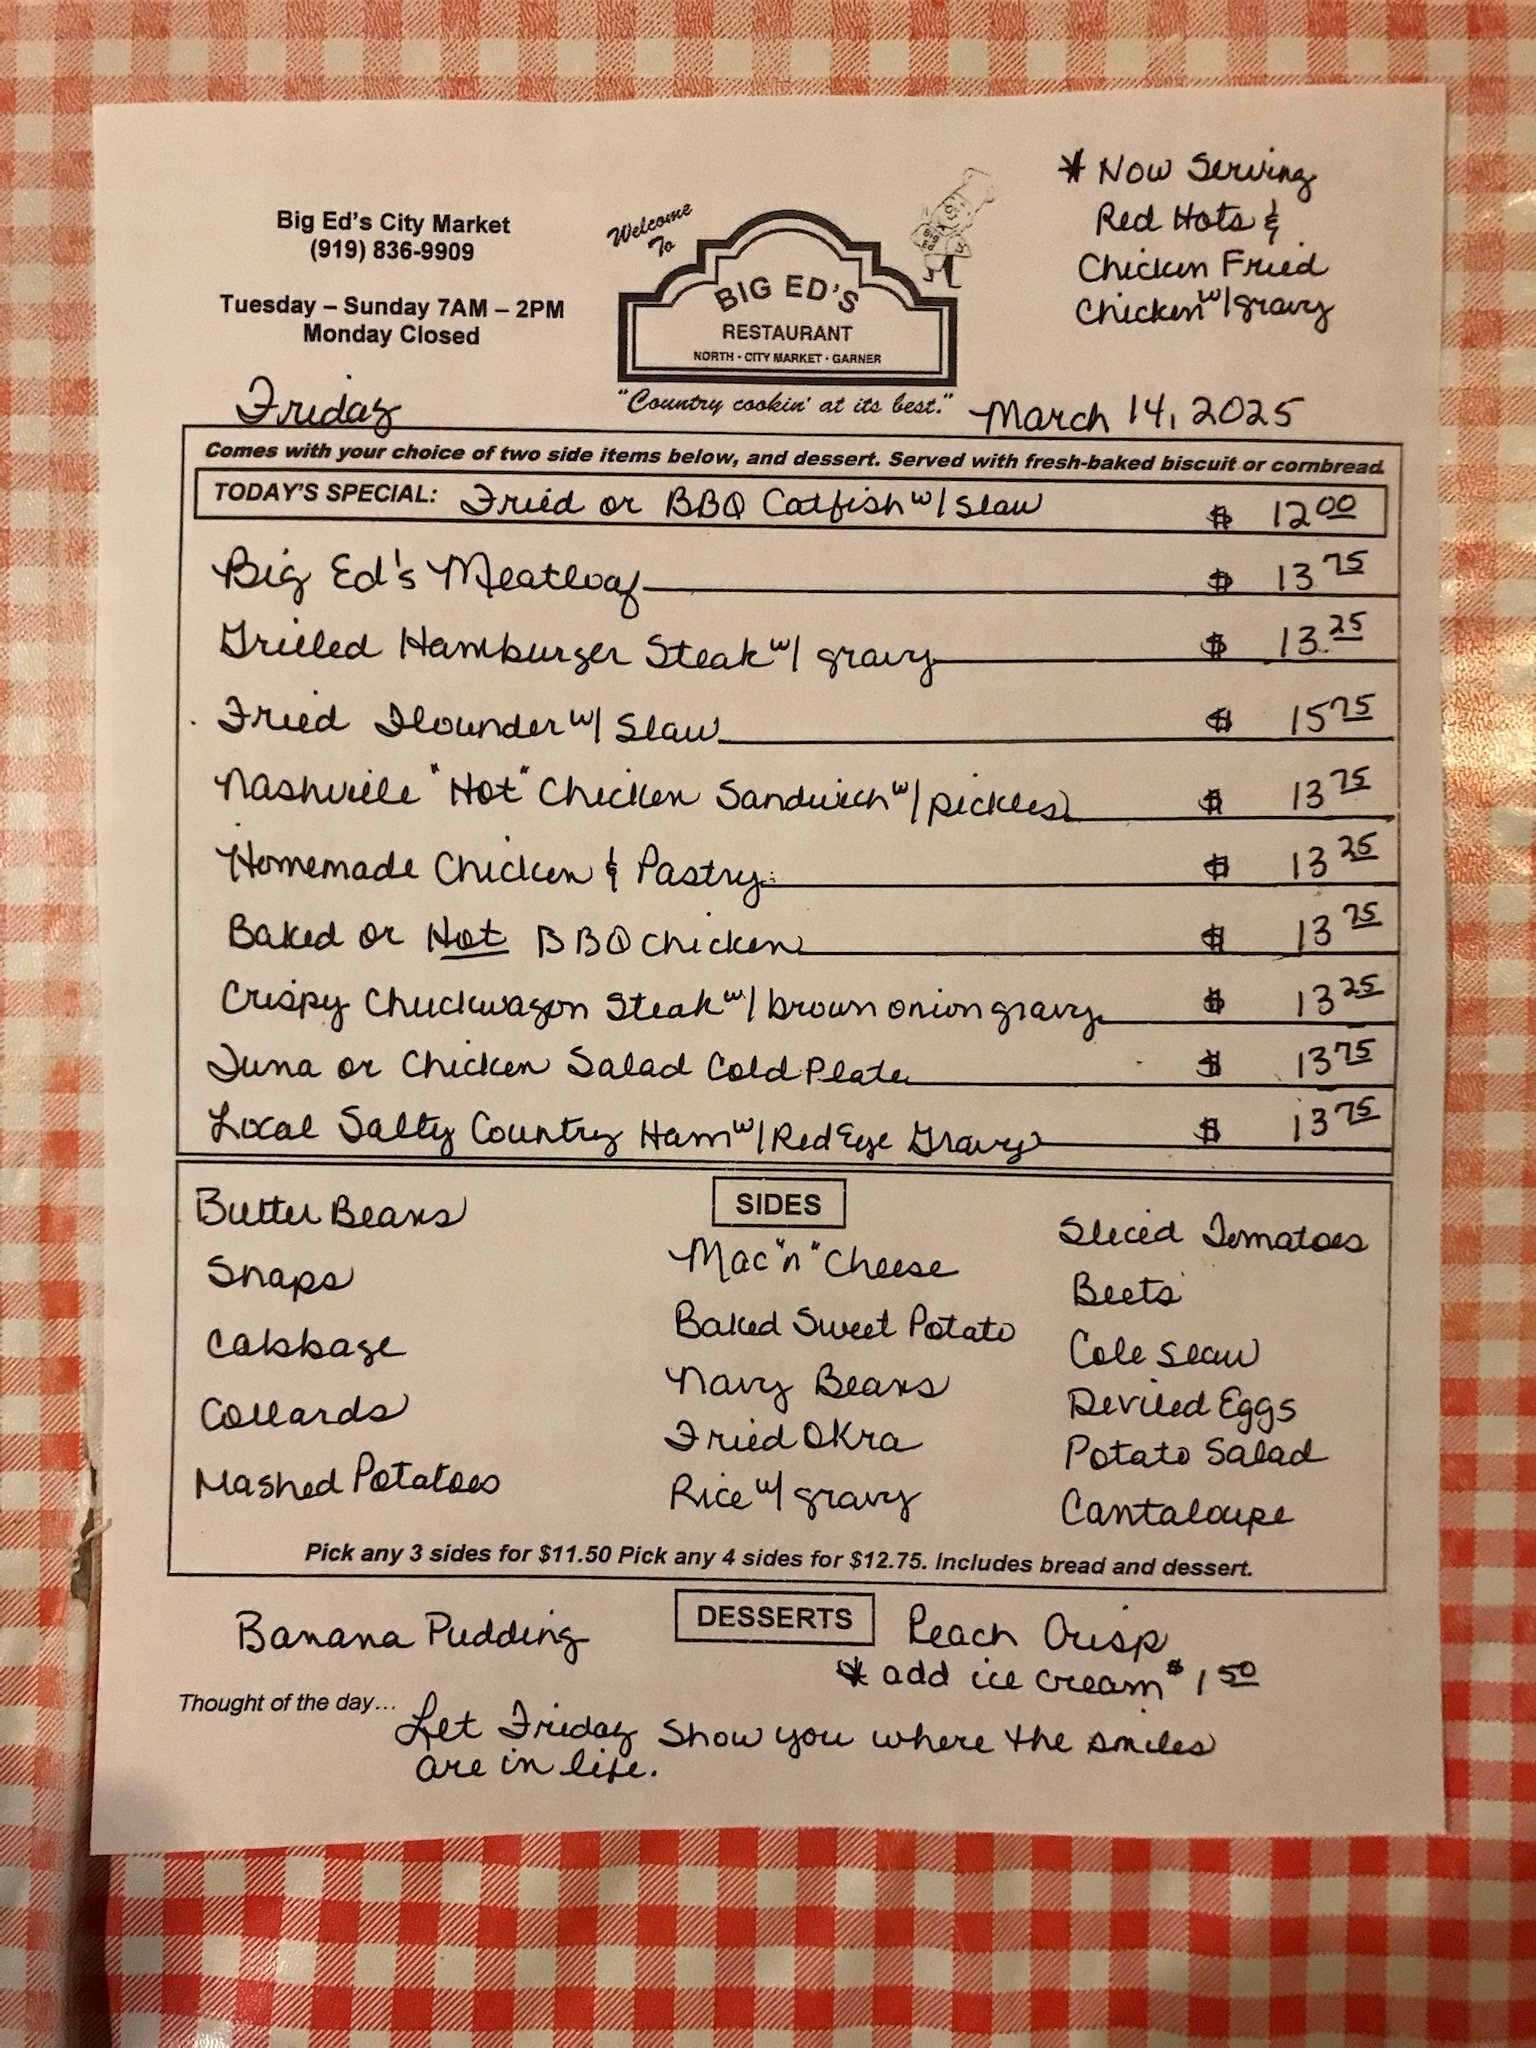 Big Ed's City Market
(919) 836-9909
Tuesday – Sunday 7AM – 2PM
Monday Closed
Welcome
To
BIG ED'S
RESTAURANT
NORTH · CITY MARKET · GARNER
"Country cookin' at its best."
* Now Serving
Red Hots &
Chicken Fried
Chicken w/gravy
Friday
March 14, 2025
Comes with your choice of two side items below, and dessert. Served with fresh-baked biscuit or cornbread.
TODAY'S SPECIAL: Fried or BBQ Catfish w/ slaw $ 12.00
Big Ed's Meatloaf $ 13 75
Grilled Hamburger Steak w/ gravy $ 13.25
Fried Flounder w/ Slaw $ 15 75
Nashville "Hot" Chicken Sandwich w/ pickles $ 13 75
Homemade Chicken & Pastry $ 13 25
Baked or Hot BBQ Chicken $ 13 75
Crispy Chuckwagon Steak w/ brown onion gravy $ 13 25
Tuna or Chicken Salad Cold Plate $ 13 75
Local Salty Country Ham w/ Red Eye Gravy $ 13 75
SIDES
Butter Beans
Snaps
Cabbage
Collards
Mashed Potatoes
Mac "n" Cheese
Baked Sweet Potato
Navy Beans
Fried Okra
Rice w/ gravy
Sliced Tomatoes
Beets
Cole Slaw
Deviled Eggs
Potato Salad
Cantaloupe
Pick any 3 sides for $11.50 Pick any 4 sides for $12.75. Includes bread and dessert.
DESSERTS
Banana Pudding
Peach Crisp
* add ice cream $1 50
Thought of the day… Let Friday show you where the smiles
are in life.